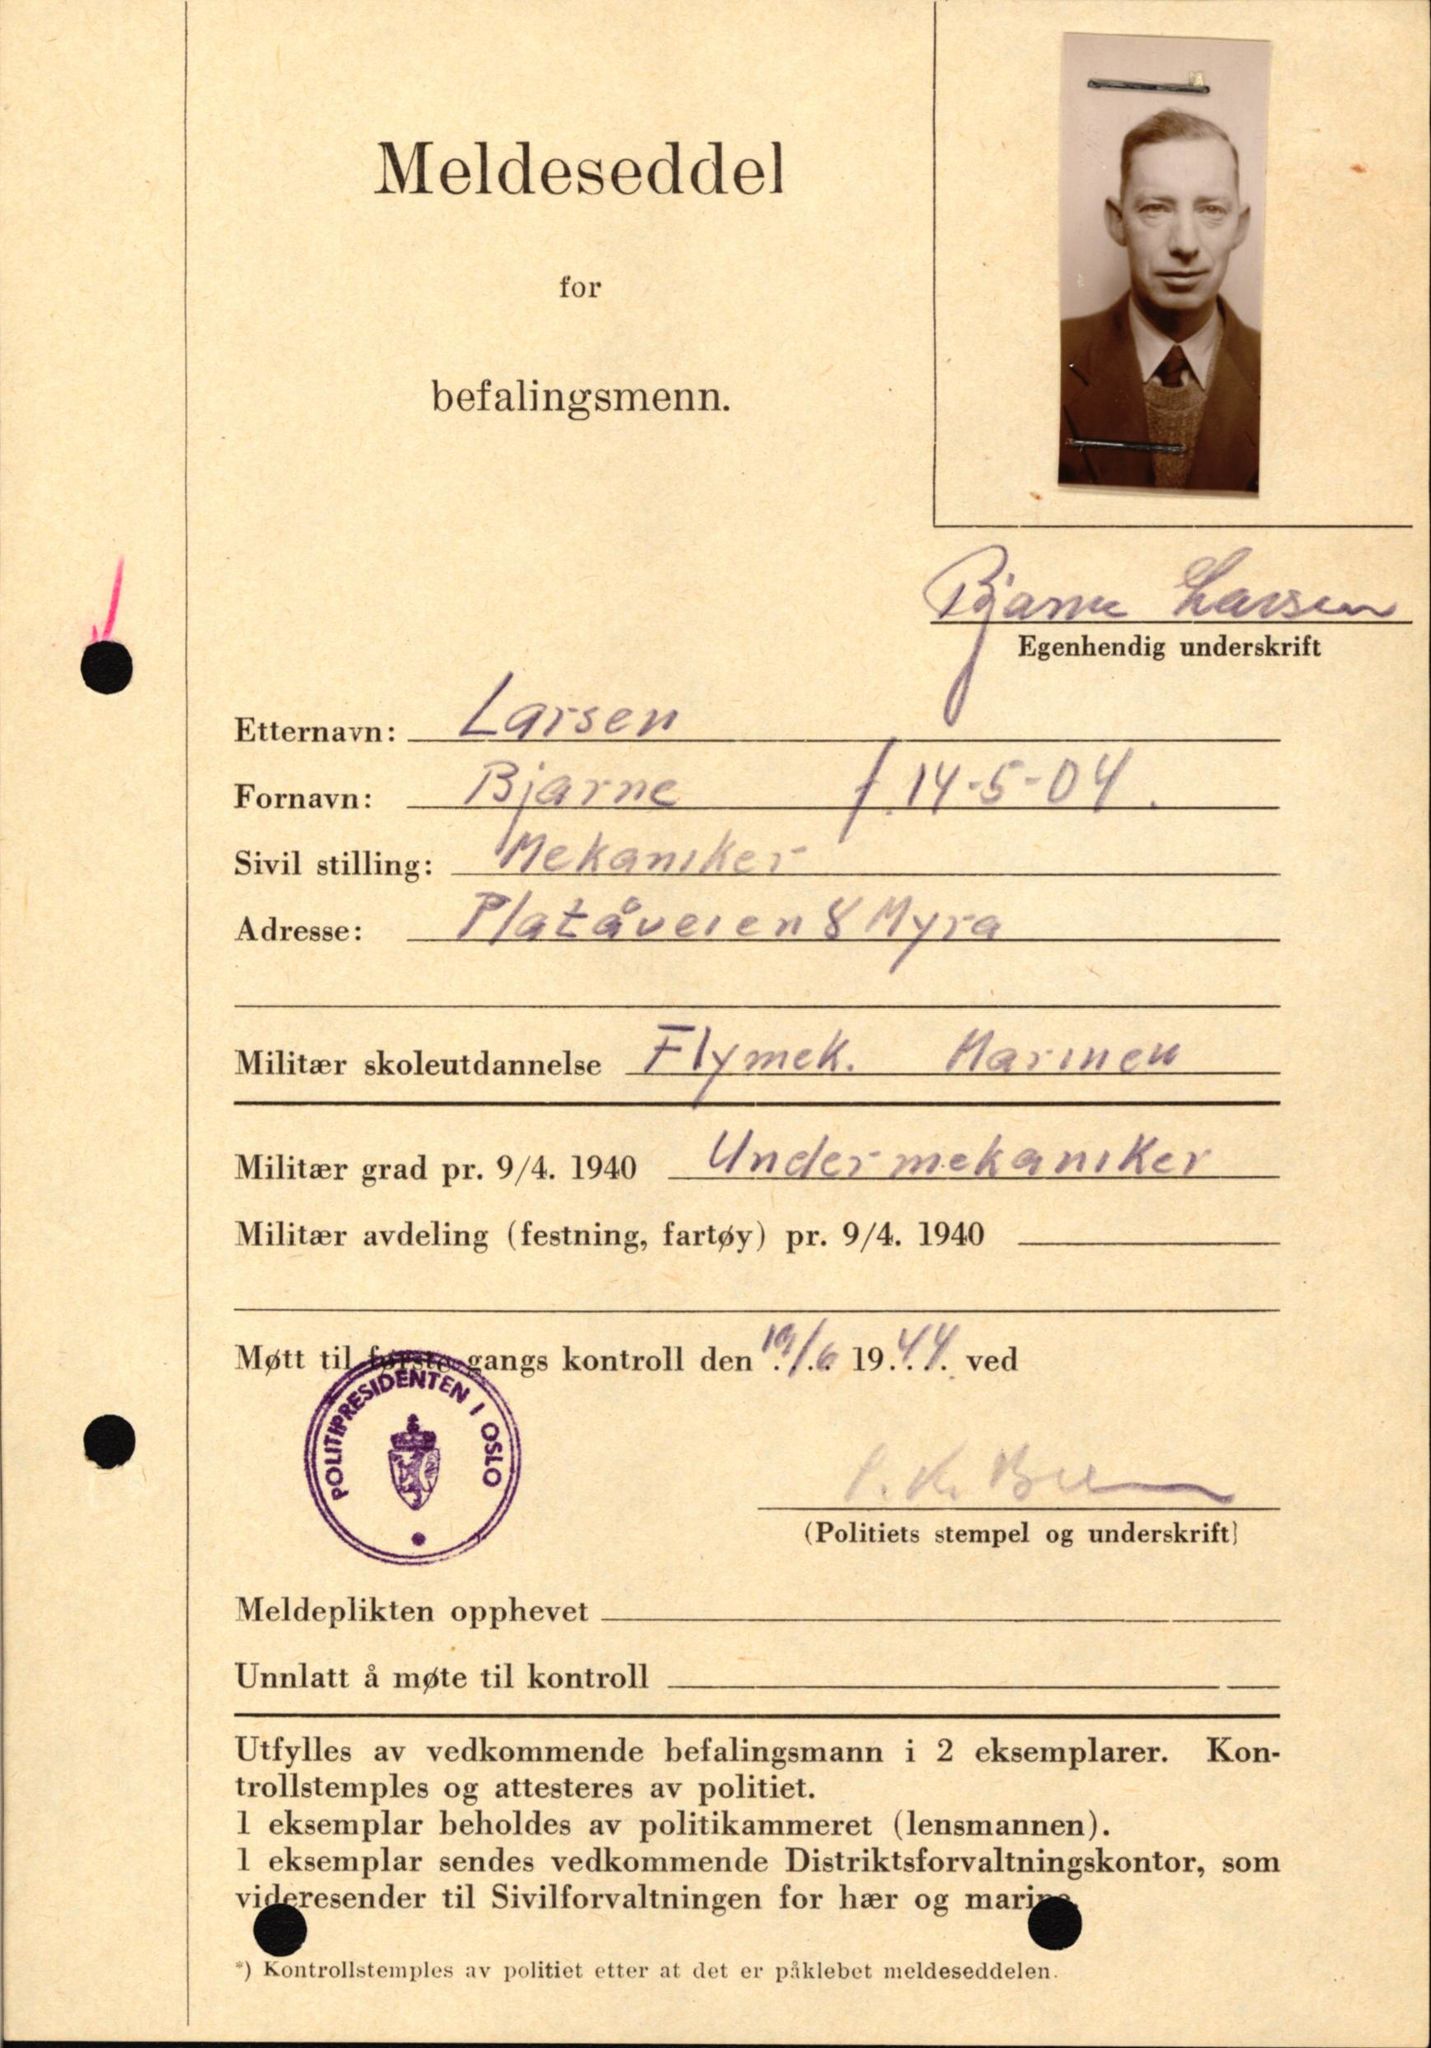 Meldeseddel
for
befalingsmenn.
Bjarne Larsen
Egenhendig underskrift
Etternavn: Larsen
Fornavn: Bjarne f. 14-5-04.
Sivil stilling: Mekaniker
Adresse: Platåveien 8 Myra
Militær skoleutdannelse Flymek. Marinen
Militær grad pr. 9/4. 1940 Undermekaniker
Militær avdeling (festning, fartøy) pr. 9/4. 1940
Møtt til første gangs kontroll den 19/6 1944. ved
POLITIPRESIDENTEN I OSLO
(Politiets stempel og underskrift)
Meldeplikten opphevet
Unnlatt å møte til kontroll
Utfylles av vedkommende befalingsmann i 2 eksemplarer. Kon-
trollstemples og attesteres av politiet.
1 eksemplar beholdes av politikammeret (lensmannen).
1 eksemplar sendes vedkommende Distriktsforvaltningskontor, som
videresender til Sivilforvaltningen for hær og marine.
*) Kontrollstemples av politiet etter at det er påklebet meldeseddelen.